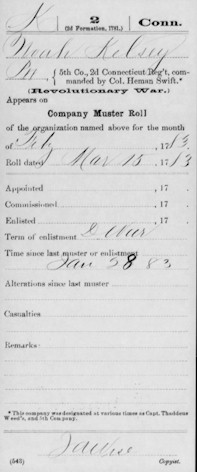 K 2 Conn.
(2d Formation, 1781.)
Noah Kelsey
Pvt, 5th Co., 2d Connecticut Reg't, com-
manded by Col. Heman Swift.*
(Revolutionary War.)
Appears on
Company Muster Roll
of the organization named above for the month
of Feb, 1783.
Roll dated Mar 15, 1783
Appointed , 17 .
Commissioned , 17 .
Enlisted , 17 .
Term of enlistment D. War
Time since last muster or enlistment
Jan 28 83
Alterations since last muster
Casualties
Remarks:
* This company was designated at various times as Capt. Thaddeus
Weed's, and 5th Company.
(543) Copyist.